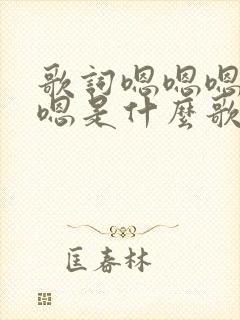 歌詞嗯嗯嗯
嗯是什麼歌
匡春林